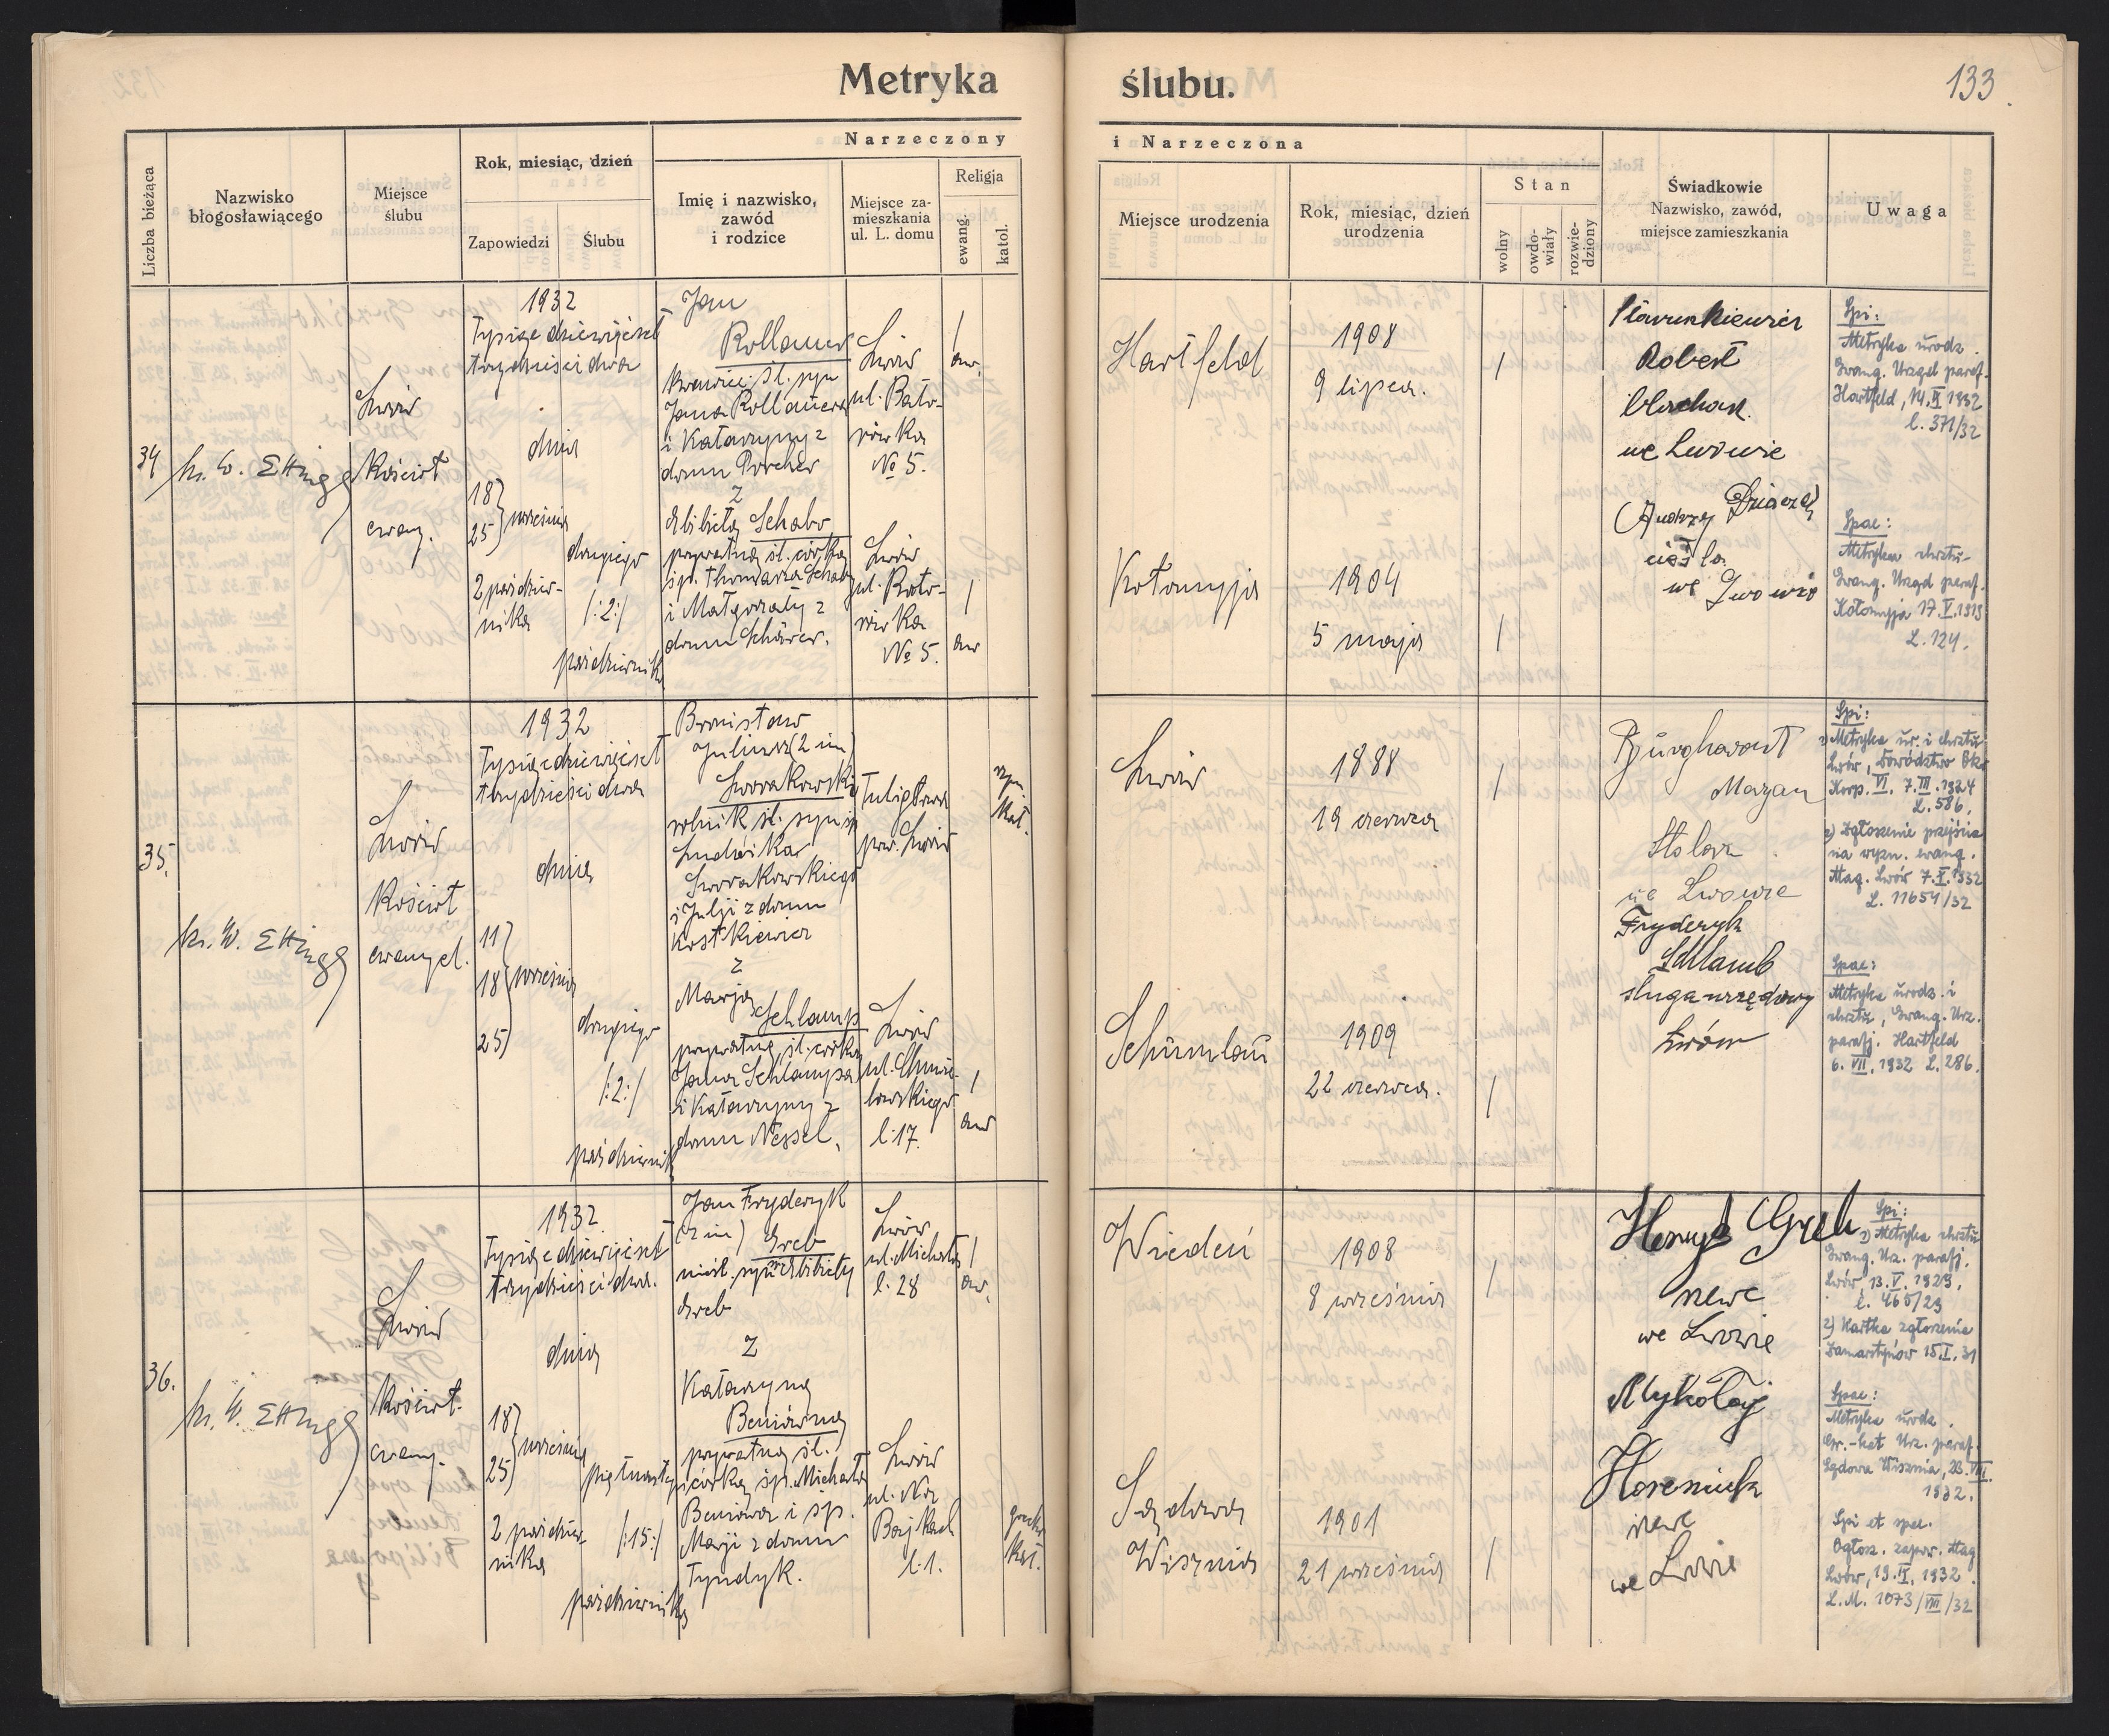 Metryka ślubu.
133
Liczba bieżąca
Nazwisko
błogosławiącego
Miejsce
ślubu
Rok, miesiąc, dzień
Zapowiedzi
Ślubu
Narzeczony
Imię i nazwisko,
zawód
i rodzice
Miejsce za-
mieszkania
ul. L. domu
Religja
ewang.
katol.
i Narzeczona
Miejsce urodzenia
Rok, miesiąc, dzień
urodzenia
Stan
wolny
owdo-
wiały
rozwie-
dziony
Świadkowie
Nazwisko, zawód,
miejsce zamieszkania
Uwaga
34
ks. W. Ettinger
Lwów
Kościół
ewang.
1932
Tysiąc dziewięćset
trzydzieści dwa
dnia
18
25 września
2 paździer-
nika
drugiego
/:2:/
październik
Jan
Rollauer
krawiec st. syn
Jana Rollauera
i Katarzyny z
domu Porcher
z
Elżbietą Schabo
prywatną st. córką
śp. Thomasza Schabo
i Małgorzaty z
domu Schärer.
Lwów
ul. Bato-
rówka
№ 5.
Lwów
ul. Bato-
rówka
№ 5.
/
aw.
/
aw
Hartfeld
1908
9 lipca.
/
Kołomyja
1904
5 maja
/
Robert
blacharz
we Lwowie
Andrzej
cieśla
we Lwowie
Spi:
Metryka urodz.
Ewang. Urząd paraf.
Hartfeld, 14.IX 1932
l. 371/32
Spae:
Metryka chrztu-
Ewang. Urząd paraf.
Kołomyja 17.V.1913
L. 124.
35.
ks. W. Ettinger
Lwów
Kościół
ewangel.
1932
Tysiąc dziewięćset
trzydzieści dwa
dnia
11
18 września
25
drugiego
/:2:/
październik
Bronisław
Juliusz (2 im)
Sworakowski
rolnik st. syn śp
Ludwika
Sworakowskiego
i Julji z domu
Kostkiewicz
z
Marją
Schlamp
prywatną st. córką
Jana Schlampa
i Katarzyny z
domu Nessel.
Tuligłowa
pow. Lwów
Lwów
ul. Chmie-
lowskiego
l. 17.
rzym.
kat.
/
aw
Lwów
1888
19 czerwca
/
Schumlau
1909
22 czerwca.
/
Burghardt
Mazan
Stolarz
we Lwowie
Fryderyk
Schlamb
sługa urzędowy
Lwów
Spi:
1) Metryka ur. i chrztu
Lwów, Dowództwo Okr
Korp. VI. 7.III.1924
L. 586.
2) Zgłoszenie przejścia
na wyzn. ewang.
Mag. Lwów 7.X.1932
L. 11654/32
Spae:
Metryka urodz. i
chrztu, Ewang. Urz.
parafj. Hartfeld
6.VII.1932 L. 286.
36.
ks. W. Ettinger
Lwów
Kościół
ewang.
1932
Tysiąc dziewięćset
trzydzieści dwa.
dnia
18
25 września
2 paździer-
nika
piętnasty
/:15:/
października
Jan Fryderyk
(2 im) Greb
nieśl. syn Elżbiety
Greb
z
Katarzyną
Beniówną
prywatną st.
córką śp. Michała
Beniowa i śp.
Marji z domu
Tyndyk.
Lwów
ul. Michała
l. 28
Lwów
ul. Na
Bajkach
l. 1.
/
aw.
grecko
kat.
Wiedeń
1908
8 września
/
Sądowa
Wisznia
1901
21 września
/
Henryk Greb
szewc
we Lwowie
Mykołaj
szewc
we Lwowie
Spi:
1) Metryka chrztu
Ewang. Urz. parafj.
Lwów, 13.V.1929,
l. 465/29
2) Kartka zgłoszenia
Zamarstynów 15.I.31
Spae:
Metryka urodz.
Gr.-kat Urz. paraf.
Sądowa Wisznia, 23.VIII.
1932.
Spi et spae.
Ogłosz. zapow. Mag
Lwów, 19.IX.1932.
L.M. 1073/VIII/32